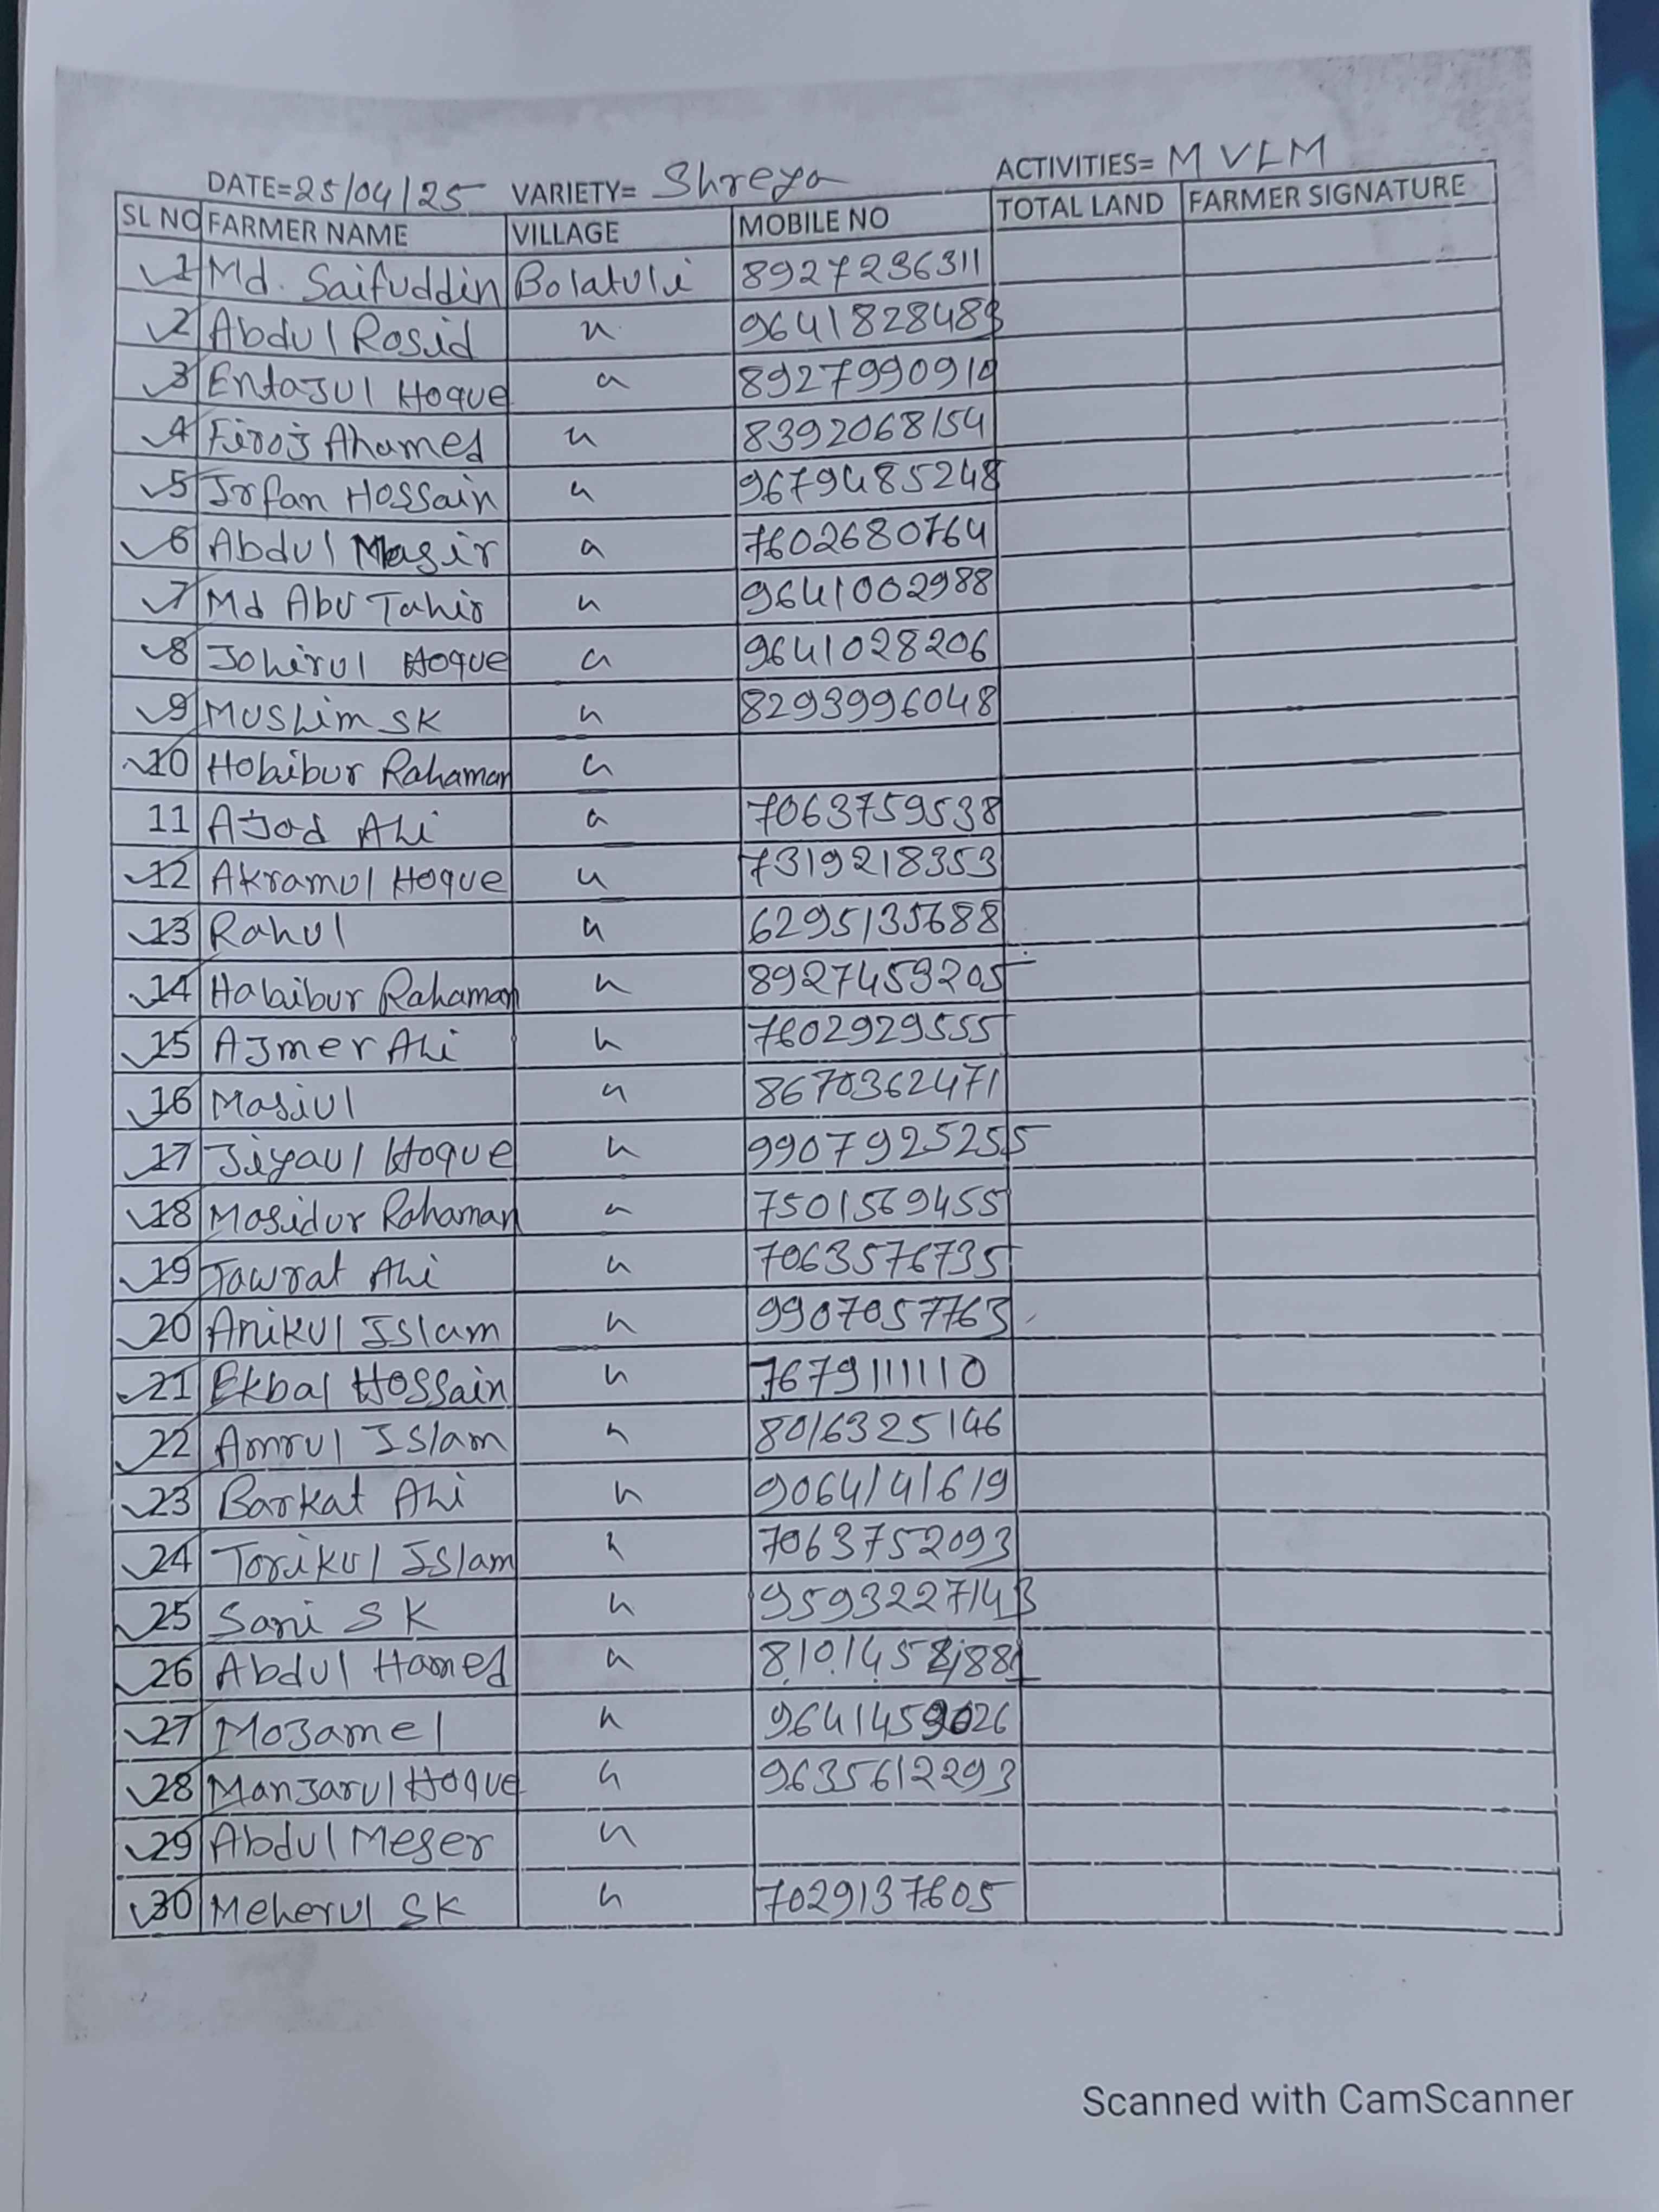 DATE=25/04/25 VARIETY= Shreya ACTIVITIES= MVLM
SL NO FARMER NAME VILLAGE MOBILE NO TOTAL LAND FARMER SIGNATURE
1 Md. Saifuddin Bolatuli 8927236311
2 Abdul Rosid " 9641828489
3 Entajul Hoque " 8927990910
4 Firoj Ahamed " 8392068154
5 Irfan Hossain " 9679485248
6 Abdul Masir " 7602680764
7 Md Abu Tahir " 9641002988
8 Johirul Hoque " 9641028206
9 Muslim SK " 8293996048
10 Hobibur Rahaman "
11 Ajod Ali " 7063759538
12 Akramul Hoque " 7319218353
13 Rahul " 6295135688
14 Habibur Rahaman " 8927459205
15 Ajmer Ali " 7602929555
16 Masiul " 8670362471
17 Jiyaul Hoque " 9907925255
18 Mosidur Rahaman " 7501569455
19 Tawrat Ali " 7063576735
20 Anikul Islam " 9907057763
21 Ekbal Hossain " 7679111110
22 Amrul Islam " 8016325146
23 Barkat Ali " 9064141619
24 Torikul Islam " 7063752093
25 Sani SK " 9593227143
26 Abdul Hamed "
27 Mojamel " 9641459026
28 Manjarul Hoque " 9635612293
29 Abdul Meser "
30 Meherul SK " 7029137605
Scanned with CamScanner